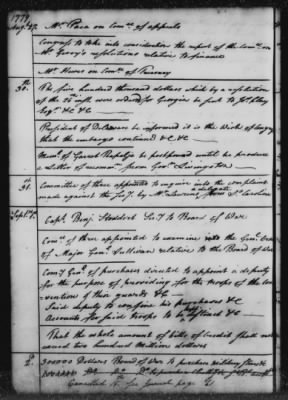 1779
Augt. 27. Mr. Paca on Comee. of appeals
Congress to take into consideration the report of the Comee. on
Mr. Gerry's resolutions relative to finance
Mr. Howe on Comee. of Treasury
30. The five hundred thousand dollars which by a resolution
of the 26 inst. were ordered for Georgia be put to
Esqr. &C
President of Delaware be informed it is the wish of Congress
that the embargo continued &C &C
Meml. of Garret Rapalje be postponed until he produce
a Letter of recomm from Govr. Livingston
31. Committee of three appointed to enquire into the complaint
made against the Secy. by Mr. Laurens a delegate from So. Carolina
Sept. 1. Capt. Benj. Stoddert Secy to Board of War
Comee. of three appointed to examine into the
of Major Genl. Sullivan relative to the Board of War
Comy Genl. of purchases directed to appoint a deputy
for the purpose of providing for the troops of the con
vention & their guards &C
Said deputy to his purchases &C
Accounts for said troops to be &C
That the whole amount of bills of Credit shall not
exceed two hundred Million dollars
2. 300000 Dollars Board of War to purchase military Stores &C
Cancelled &. See Journal page